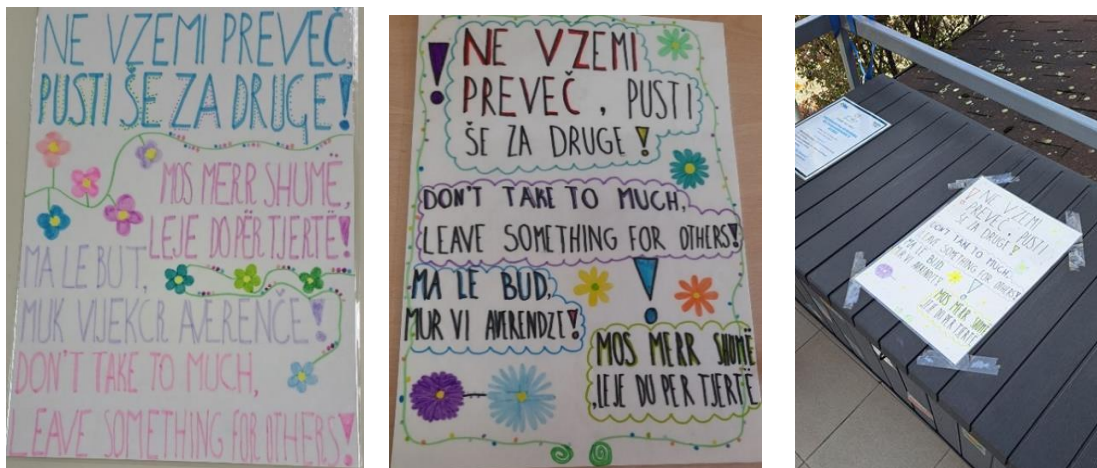 NE VZEMI PREVEČ,
PUSTI ŠE ZA DRUGE!
MOS MERR SHUMË,
LEJE DO PËR TJERTË!
MA LE BUT,
MUK VIJEKCR AVERENČE!
DON'T TAKE TO MUCH,
LEAVE SOMETHING FOR OTHERS!
NE VZEMI
PREVEČ, PUSTI
ŠE ZA DRUGE!
DON'T TAKE TO MUCH,
LEAVE SOMETHING FOR OTHERS!
MA LE BUD,
MUR VI AVERENDZE!
MOS MERR SHUMË
,LEJE DU PER TJERTË
NE VZEMI
PREVEČ, PUSTI
ŠE ZA DRUGE!
DON'T TAKE TO MUCH,
LEAVE SOMETHING FOR OTHERS!
MA LE BUD,
MUR VI AVERENDZE!
MOS MERR SHUMË
,LEJE DU PER TJERTË